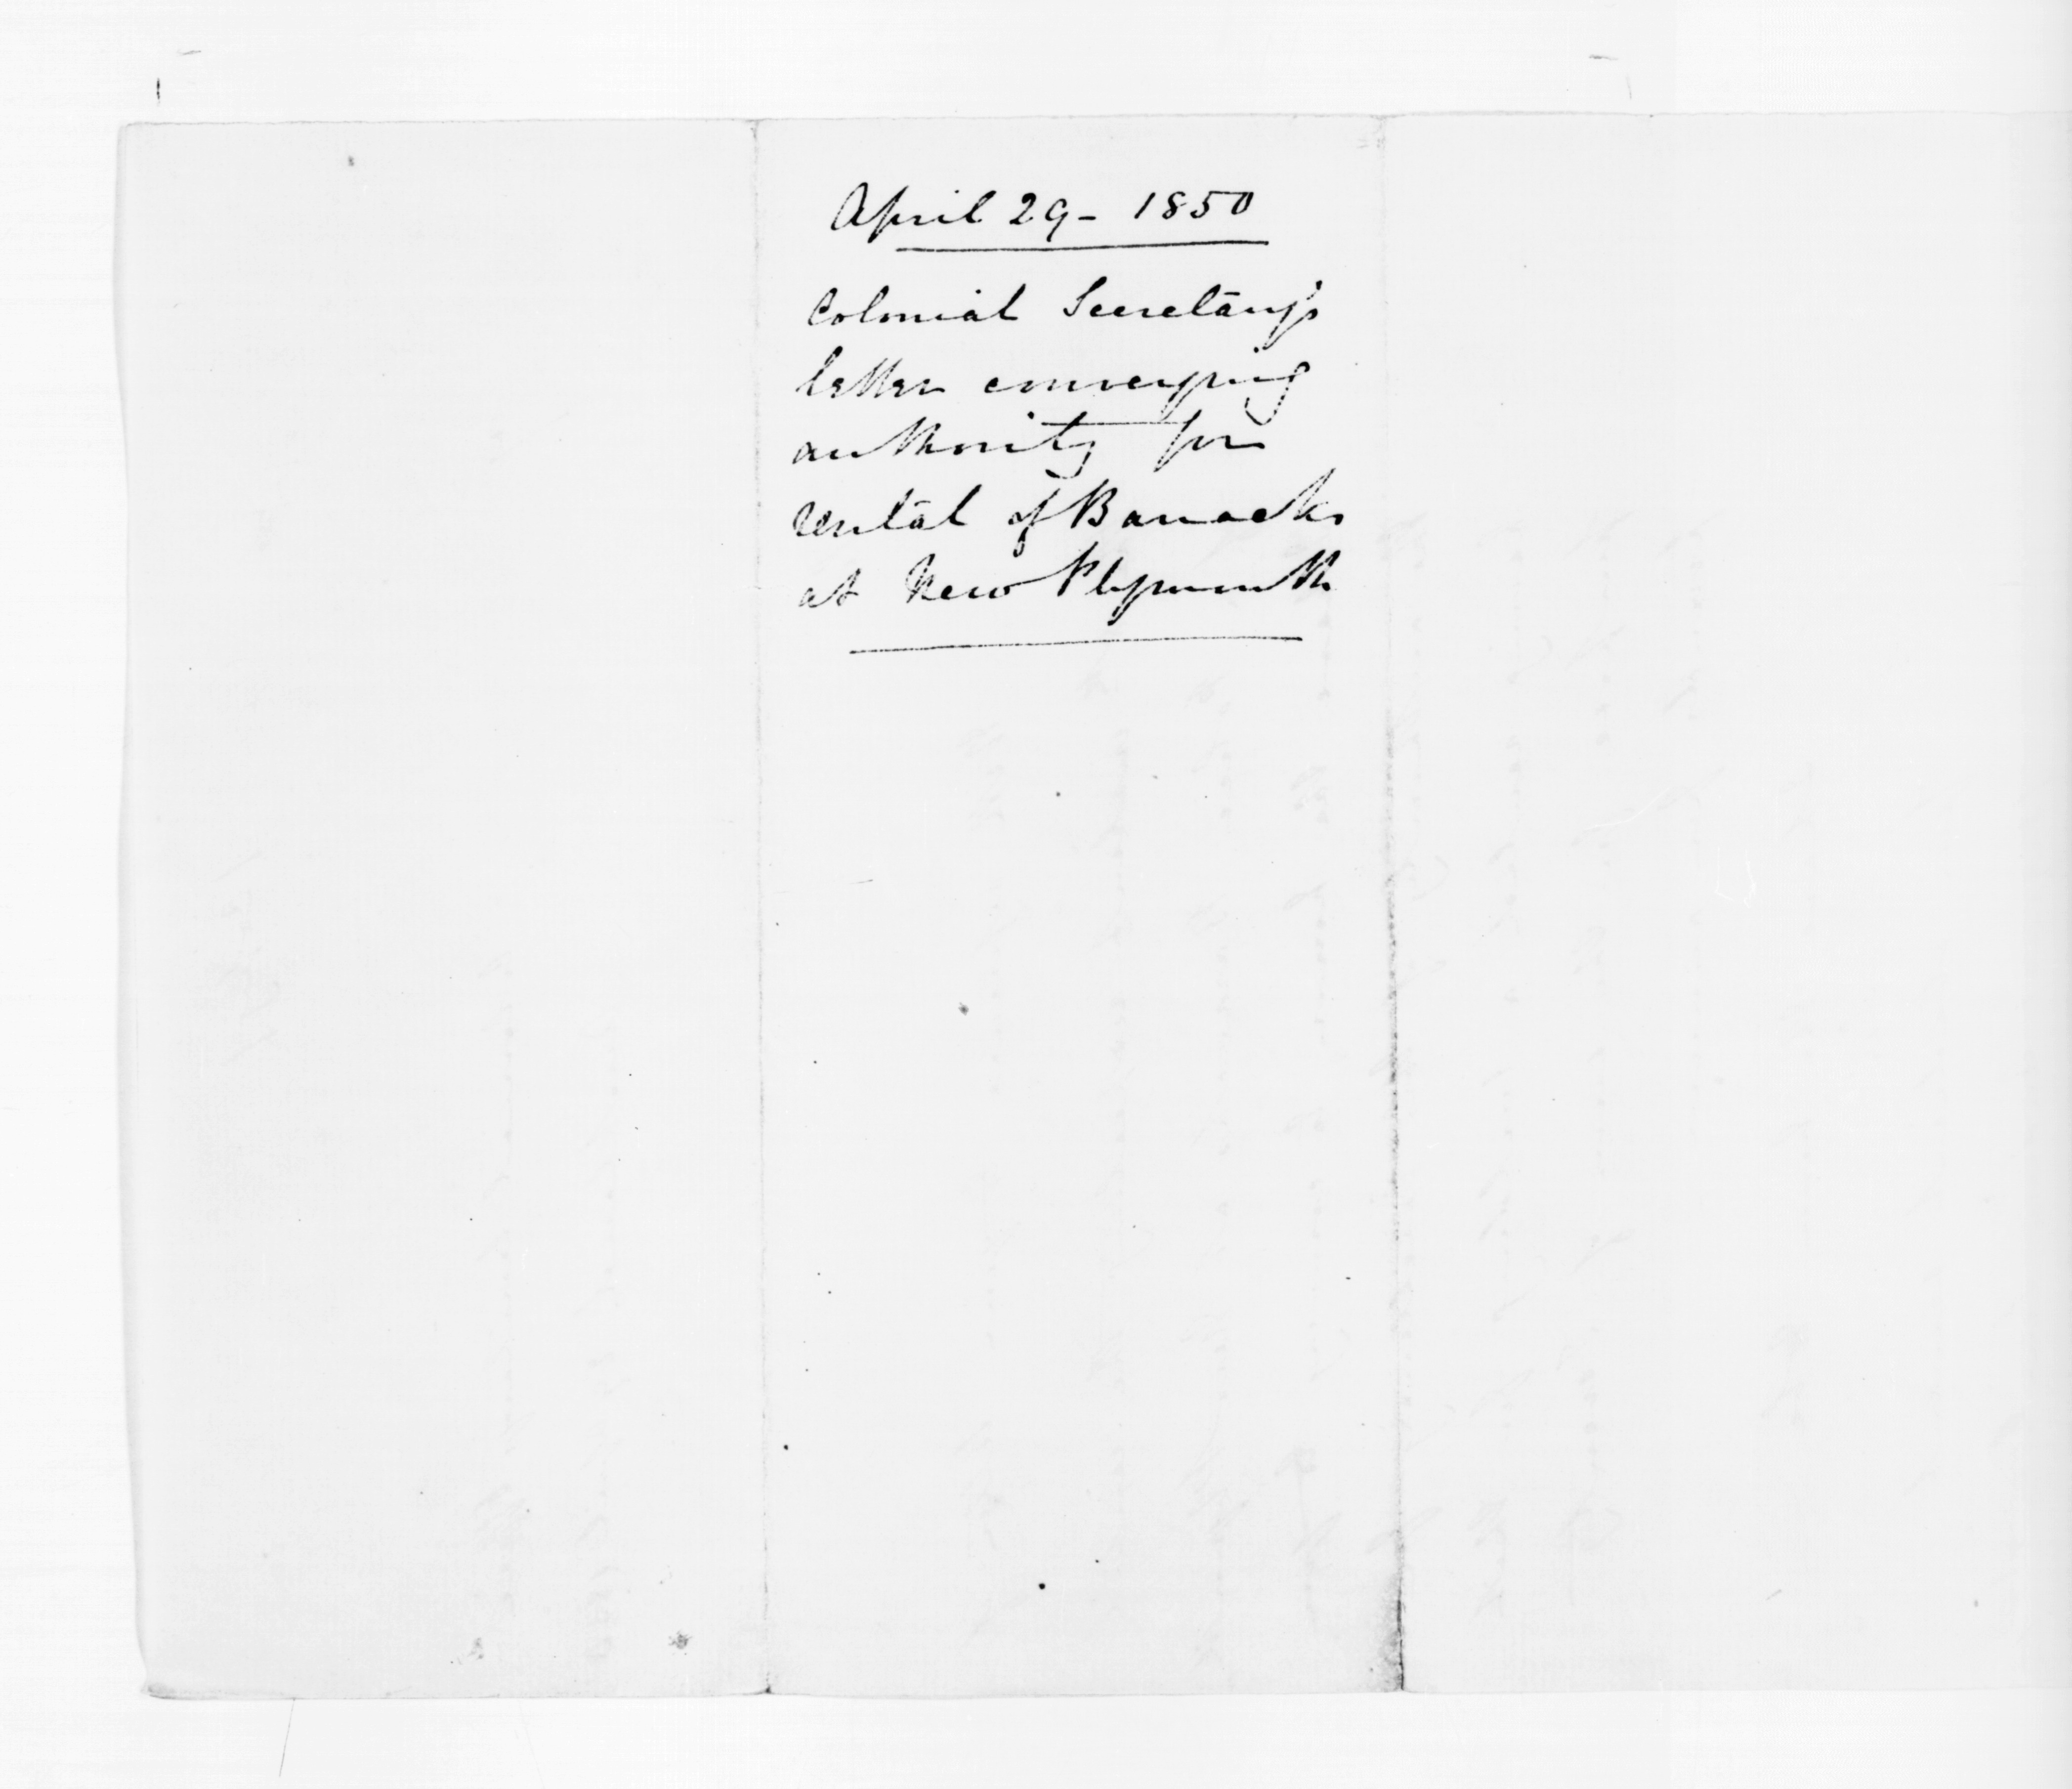 April 29 - 1850
Colonial Secretary's
letter conveying
authority for
rental of Barracks
at New Plymouth